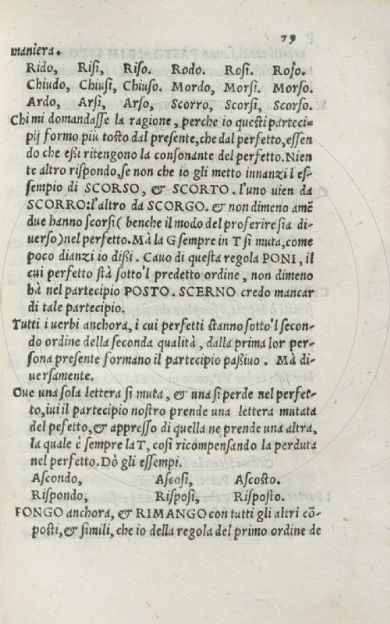 79
maniera.
Rido, Risi, Riso. Rodo. Rosi. Roso.
Chiudo, Chiusi, Chiuso. Mordo, Morsi. Morso.
Ardo, Arsi, Arso, Scorro, Scorsi, Scorso.
Chi mi domandasse la ragione, perche io questi parteci-
pij formo più tosto dal presente, che dal perfetto, essen
do che eßi ritengono la consonante del perfetto. Nien
te altro rispondo, se non che io gli metto innanzi l es-
sempio di SCORSO, & SCORTO. l'uno uien da
SCORRO: l'altro da SCORGO. & non dimeno amẽ
due hanno scorsi (benche il modo del proferire sia di-
uerso) nel perfetto. Mà la G sempre in T si muta, come
poco dianzi io dißi. Cauo di questa regola PONI, il
cui perfetto stà sotto'l predetto ordine, non dimeno
hà nel partecipio POSTO. SCERNO credo mancar
di tale partecipio.
Tutti i uerbi anchora, i cui perfetti stanno sotto'l secon-
do ordine della seconda qualità, dalla prima lor per-
sona presente formano il partecipio paßiuo. Mà di-
uersamente.
Oue una sola lettera si muta, & una si perde nel perfet-
to, iui il partecipio nostro prende una lettera mutata
del pefetto, & appresso di quella ne prende una altra,
la quale è sempre la T, così ricompensando la perduta
nel perfetto. Dò gli essempi.
Ascondo, Ascosi, Ascosto.
Rispondo, Risposi, Risposto.
PONGO anchora, & RIMANGO con tutti gli altri cõ-
posti, & simili, che io della regola del primo ordine de